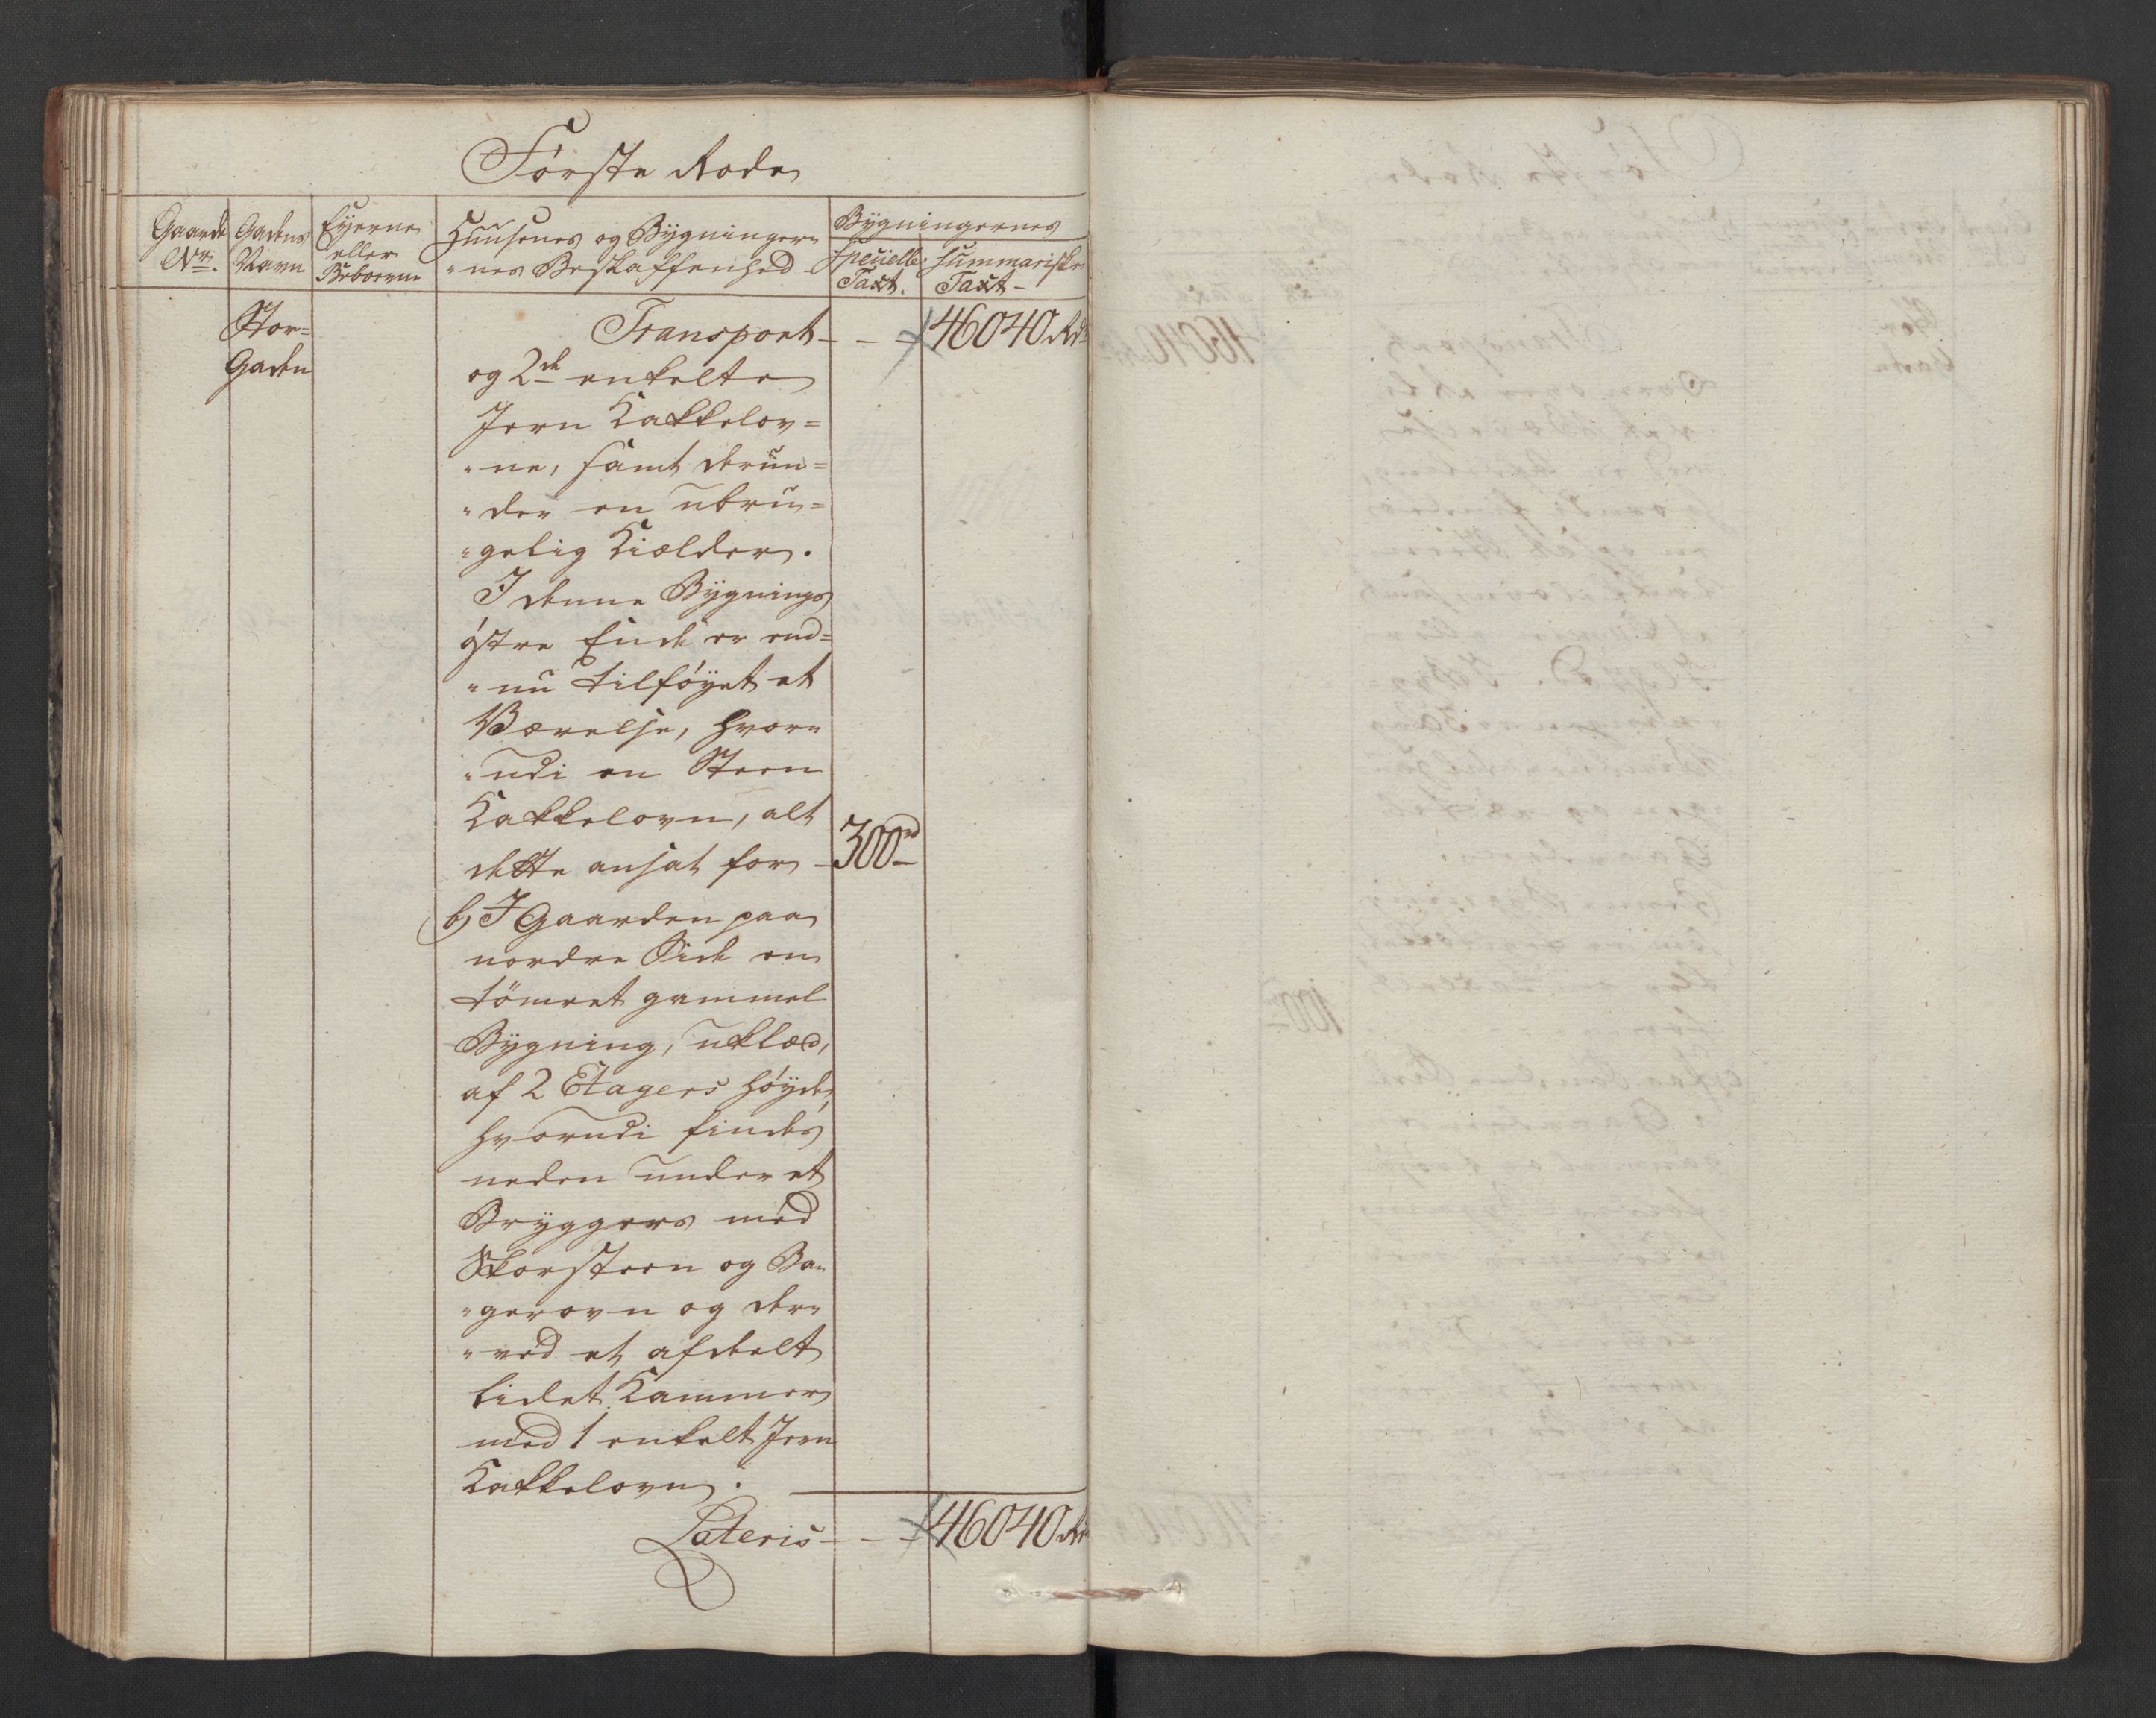 Første Rode
Gaards
No.
Gadens
Navn
Eyerne
eller
Beboerne
Huusenes og Bygninger-
"nes Beskaffenhed
Bygningernes
specielle
Taxt.
summariske
Taxt-
Stor=
Gaden
Transport - - 46040 Rd
og 2de enkelte
Jern Kakkelov=
"ne, samt derun=
"der en ubru=
"gelig Kielder.
I denne Bygnings
østre Ende er end=
"nu tilføyet et
Værelse, hvor"
"udi en Steen
Kakkelovn, alt
dette ansat for - 300rd
b) I Gaarden paa
nordre Side en
tömret gammel
Bygning, uklæd,
af 2 Etagers Høyde,
hvorudi findes
neden under et
Bryggers med
Skorsteen og Ba"
"gerovn og der"
"ved et afdeelt
lidet Kammer
med 1 enkelt Jern
Kakkelovn.
Lateris - - 46040 Rd